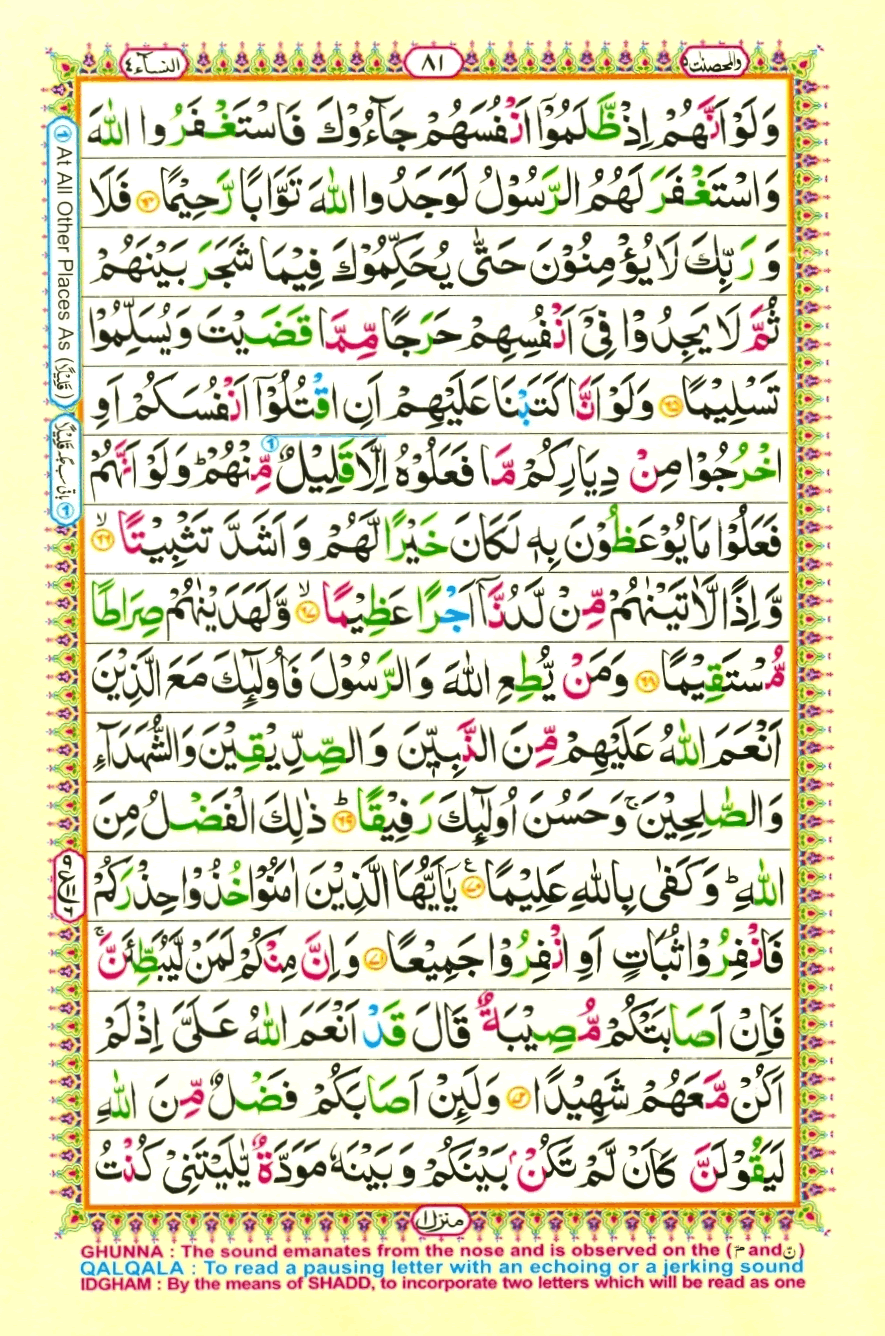 النسآء ٤
٨١
والمحصنت ٥
وَلَوْ اَنَّهُمْ اِذْ ظَّلَمُوْۤا اَنْفُسَهُمْ جَآءُوْكَ فَاسْتَغْفَرُوا اللّٰهَ
وَاسْتَغْفَرَ لَهُمُ الرَّسُوْلُ لَوَجَدُوا اللّٰهَ تَوَّابًا رَّحِيْمًا ۝٦٤ فَلَا
وَ رَبِّكَ لَا يُؤْمِنُوْنَ حَتّٰى يُحَكِّمُوْكَ فِيْمَا شَجَرَ بَيْنَهُمْ
ثُمَّ لَا يَجِدُوْا فِىْۤ اَنْفُسِهِمْ حَرَجًا مِّمَّا قَضَيْتَ وَيُسَلِّمُوْا
تَسْلِيْمًا ۝٦٥ وَلَوْ اَنَّا كَتَبْنَا عَلَيْهِمْ اَنِ اقْتُلُوْۤا اَنْفُسَكُمْ اَوِ
اخْرُجُوْا مِنْ دِيَارِكُمْ مَّا فَعَلُوْهُ اِلَّا قَلِيْلٌ مِّنْهُمْ ؕ وَلَوْ اَنَّهُمْ
فَعَلُوْا مَا يُوْعَظُوْنَ بِهٖ لَكَانَ خَيْرًا لَّهُمْ وَ اَشَدَّ تَثْبِيْتًا ۙ۝٦٦
وَّاِذًا لَّاٰتَيْنٰهُمْ مِّنْ لَّدُنَّاۤ اَجْرًا عَظِيْمًا ۙ۝٦٧ وَّلَهَدَيْنٰهُمْ صِرَاطًا
مُّسْتَقِيْمًا ۝٦٨ وَمَنْ يُّطِعِ اللّٰهَ وَالرَّسُوْلَ فَاُولٰٓئِكَ مَعَ الَّذِيْنَ
اَنْعَمَ اللّٰهُ عَلَيْهِمْ مِّنَ النَّبِيّٖنَ وَالصِّدِّيْقِيْنَ وَالشُّهَدَآءِ
وَالصّٰلِحِيْنَ ۚ وَحَسُنَ اُولٰٓئِكَ رَفِيْقًا ؕ۝٦٩ ذٰلِكَ الْفَضْلُ مِنَ
اللّٰهِ ؕ وَكَفٰى بِاللّٰهِ عَلِيْمًا ۝٧٠ ع يٰۤاَيُّهَا الَّذِيْنَ اٰمَنُوْا خُذُوْا حِذْرَكُمْ
فَانْفِرُوْا ثُبَاتٍ اَوِ انْفِرُوْا جَمِيْعًا ۝٧١ وَاِنَّ مِنْكُمْ لَمَنْ لَّيُبَطِّئَنَّ ۚ
فَاِنْ اَصَابَتْكُمْ مُّصِيْبَةٌ قَالَ قَدْ اَنْعَمَ اللّٰهُ عَلَىَّ اِذْ لَمْ
اَكُنْ مَّعَهُمْ شَهِيْدًا ۝٧٢ وَلَئِنْ اَصَابَكُمْ فَضْلٌ مِّنَ اللّٰهِ
لَيَقُوْلَنَّ كَاَنْ لَّمْ تَكُنْۢ بَيْنَكُمْ وَبَيْنَهٗ مَوَدَّةٌ يّٰلَيْتَنِىْ كُنْتُ
① At All Other Places As (قَلِيْلًا)
باقی سب جگہ قَلِيْلًا ①
منزل ١
GHUNNA : The sound emanates from the nose and is observed on the (مّ and نّ)
QALQALA : To read a pausing letter with an echoing or a jerking sound
IDGHAM : By the means of SHADD, to incorporate two letters which will be read as one